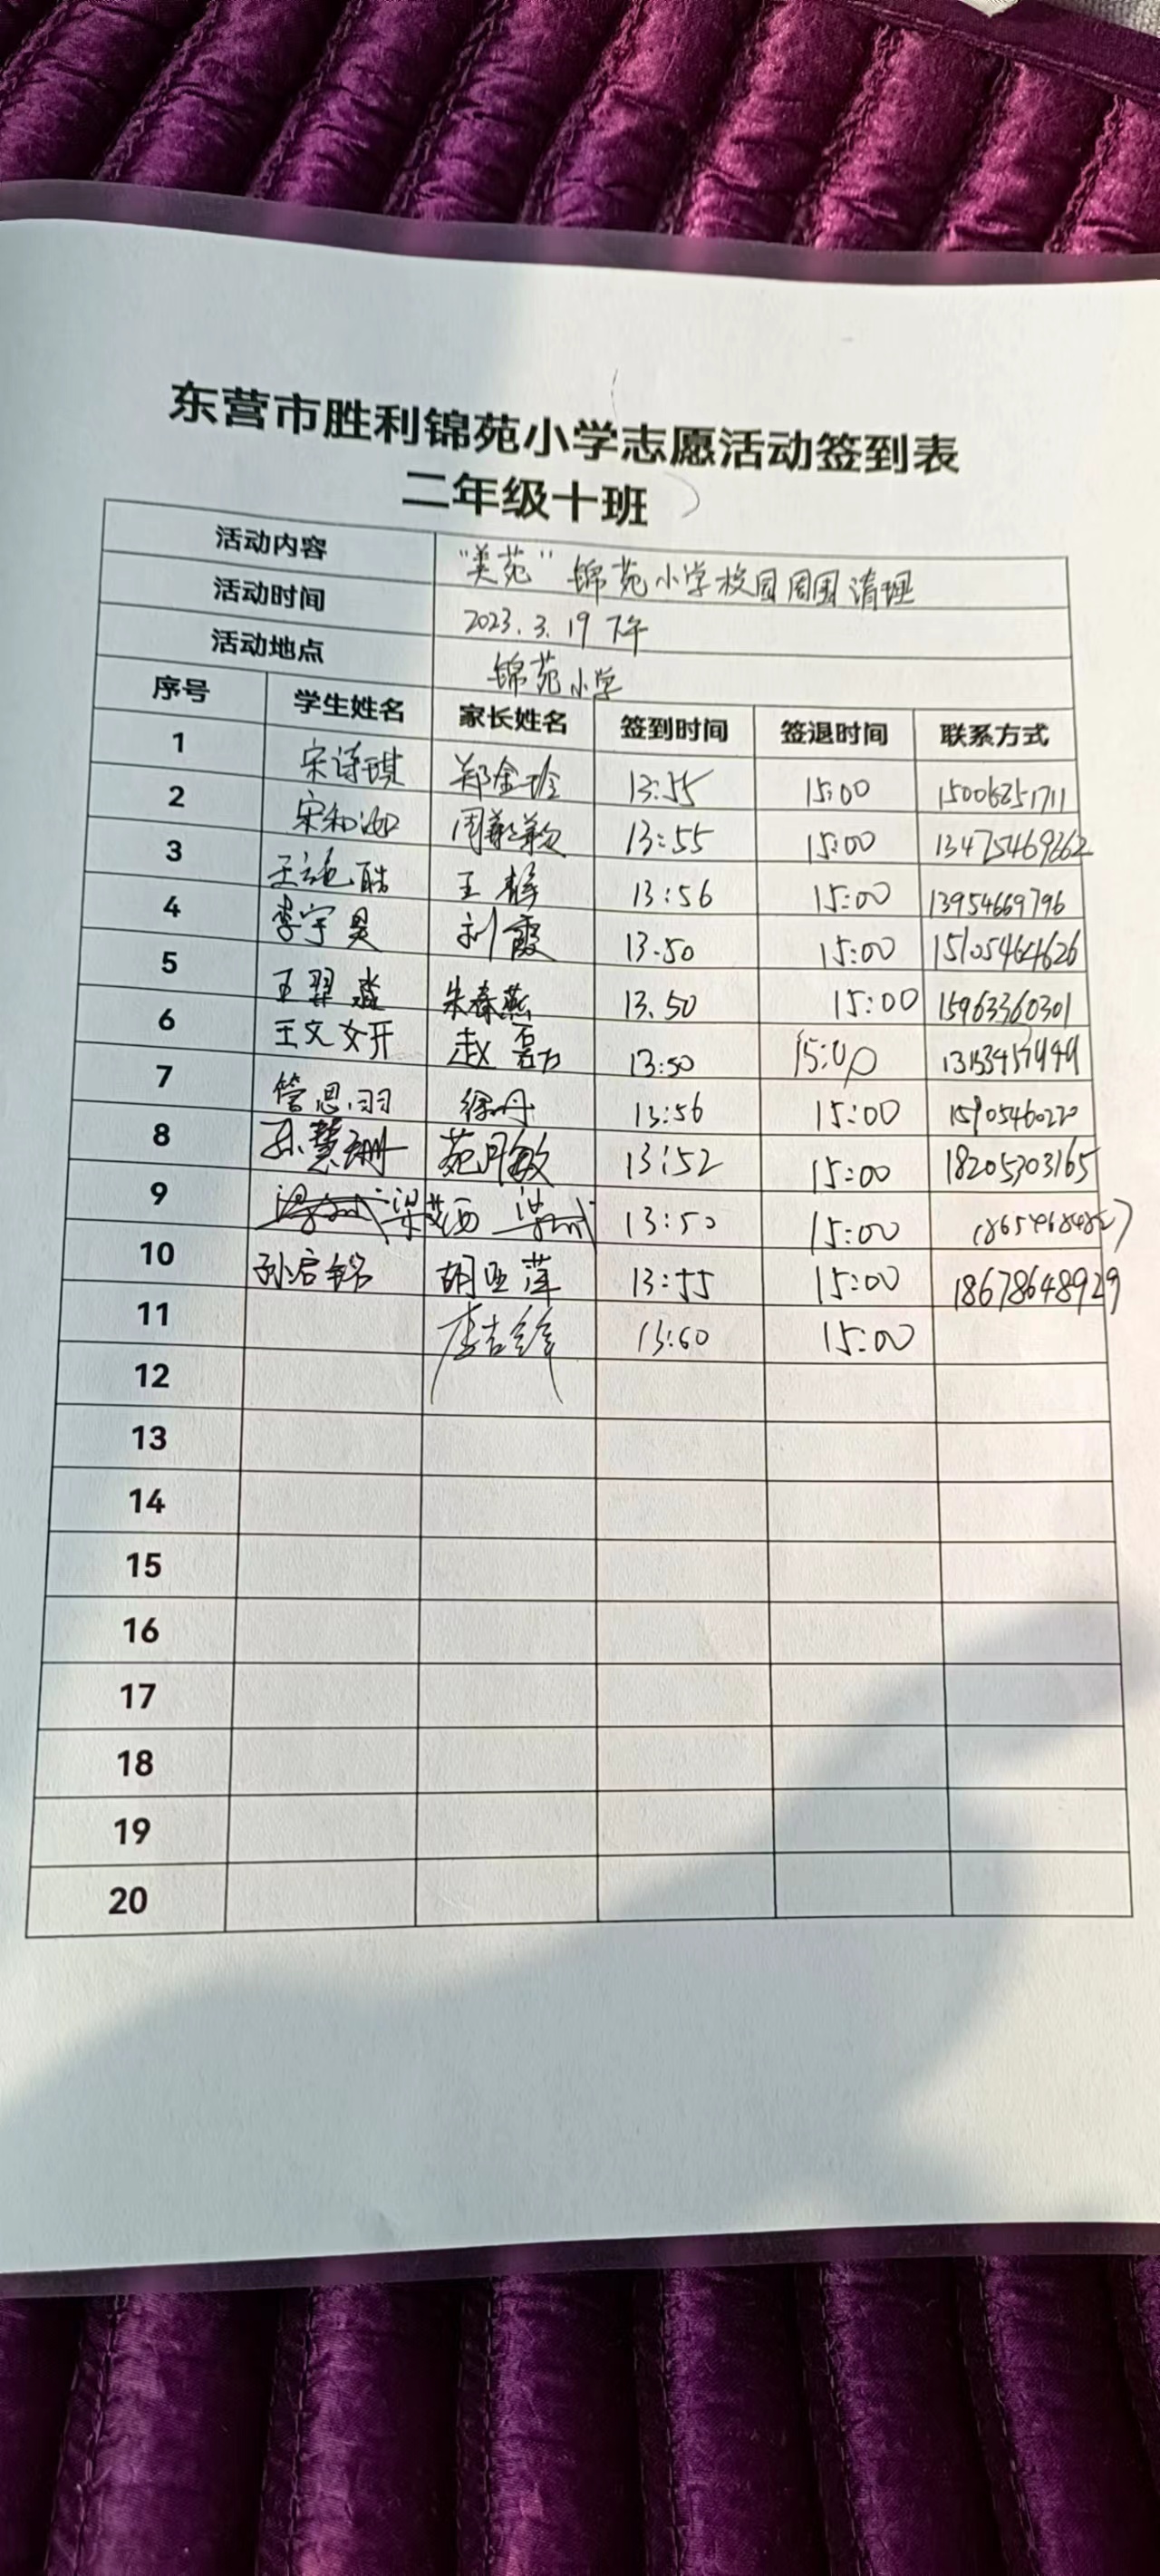 东营市胜利锦苑小学志愿活动签到表
二年级十班
活动内容 "美苑"锦苑小学校园周围清理
活动时间 2023.3.19 下午
活动地点 锦苑小学
序号 学生姓名 家长姓名 签到时间 签退时间 联系方式
1 宋诗琪 郑金玲 13:55 15:00 15006851711
2 宋和如 13:55 15:00 13475469262
3 王 王静 13:56 15:00 13954669796
4 李宇昊 刘霞 13.50 15:00 15105464626
5 王翠淼 朱春燕 13.50 15:00 15963360301
6 王文妍 赵磊 13:50 15:00
7 管恩羽 徐丹 13:56 15:00 15905460220
8 孙慧珊 苑月敏 13:52 15:00 18205303165
9 梁艺西 13:50 15:00
10 孙启铭 胡亚萍 13:55 15:00 18678648929
11 李吉锋 13:60 15:00
12
13
14
15
16
17
18
19
20